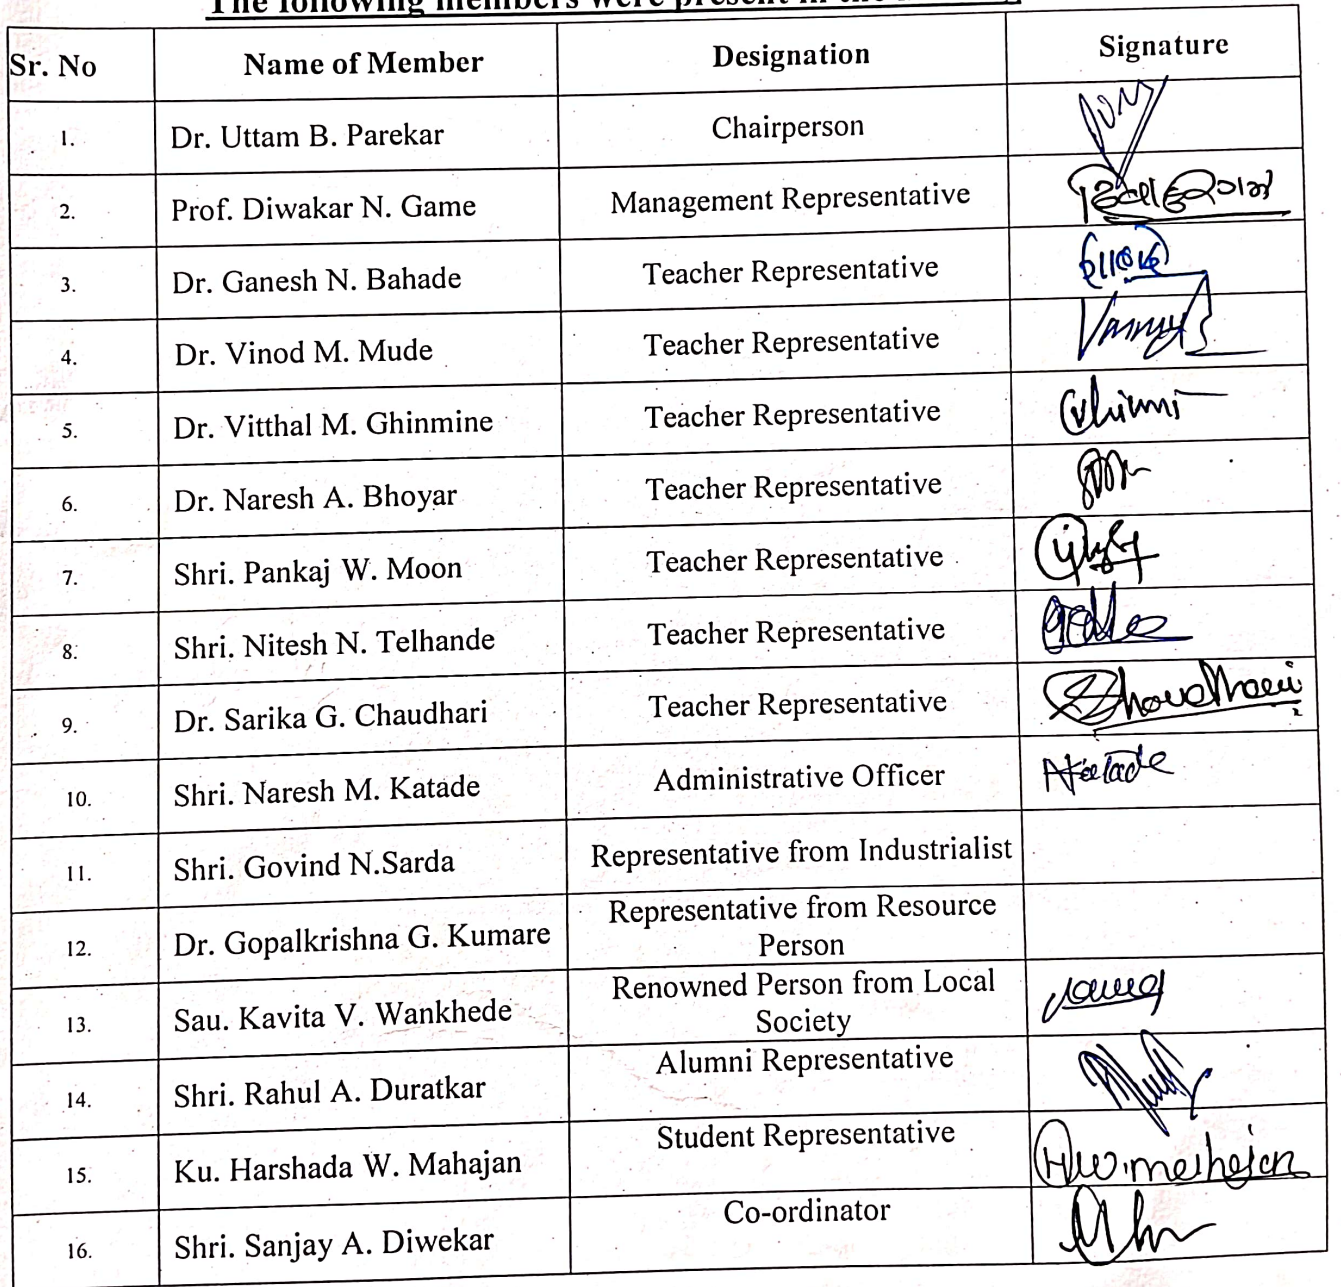 The following members were present in the
Sr. No Name of Member Designation Signature
1. Dr. Uttam B. Parekar Chairperson
2. Prof. Diwakar N. Game Management Representative
3. Dr. Ganesh N. Bahade Teacher Representative
4. Dr. Vinod M. Mude Teacher Representative
5. Dr. Vitthal M. Ghinmine Teacher Representative
6. Dr. Naresh A. Bhoyar Teacher Representative
7. Shri. Pankaj W. Moon Teacher Representative
8. Shri. Nitesh N. Telhande Teacher Representative
9. Dr. Sarika G. Chaudhari Teacher Representative
10. Shri. Naresh M. Katade Administrative Officer
11. Shri. Govind N.Sarda Representative from Industrialist
12. Dr. Gopalkrishna G. Kumare Representative from Resource
Person
13. Sau. Kavita V. Wankhede Renowned Person from Local
Society
14. Shri. Rahul A. Duratkar Alumni Representative
15. Ku. Harshada W. Mahajan Student Representative
16. Shri. Sanjay A. Diwekar Co-ordinator